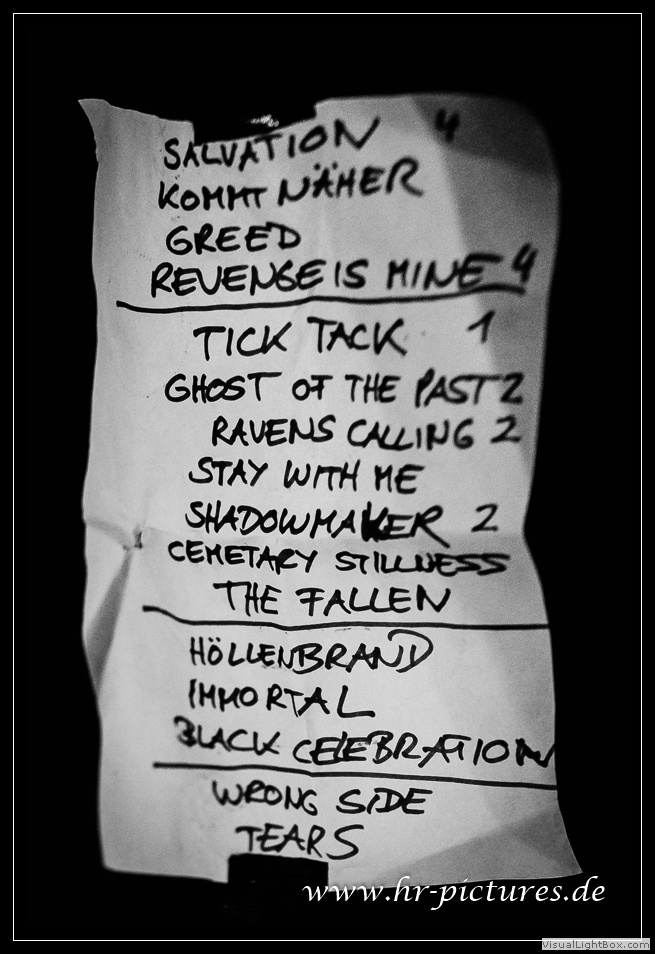 SALVATION 4
KOMMT NÄHER
GREED
REVENGE IS MINE 4
TICK TACK 1
GHOST OF THE PAST 2
RAVENS CALLING 2
STAY WITH ME
SHADOWMAKER 2
CEMETARY STILLNESS
THE FALLEN
HÖLLENBRAND
IMMORTAL
BLACK CELEBRATION
WRONG SIDE
TEARS
www.hr-pictures.de
VisualLightBox.com